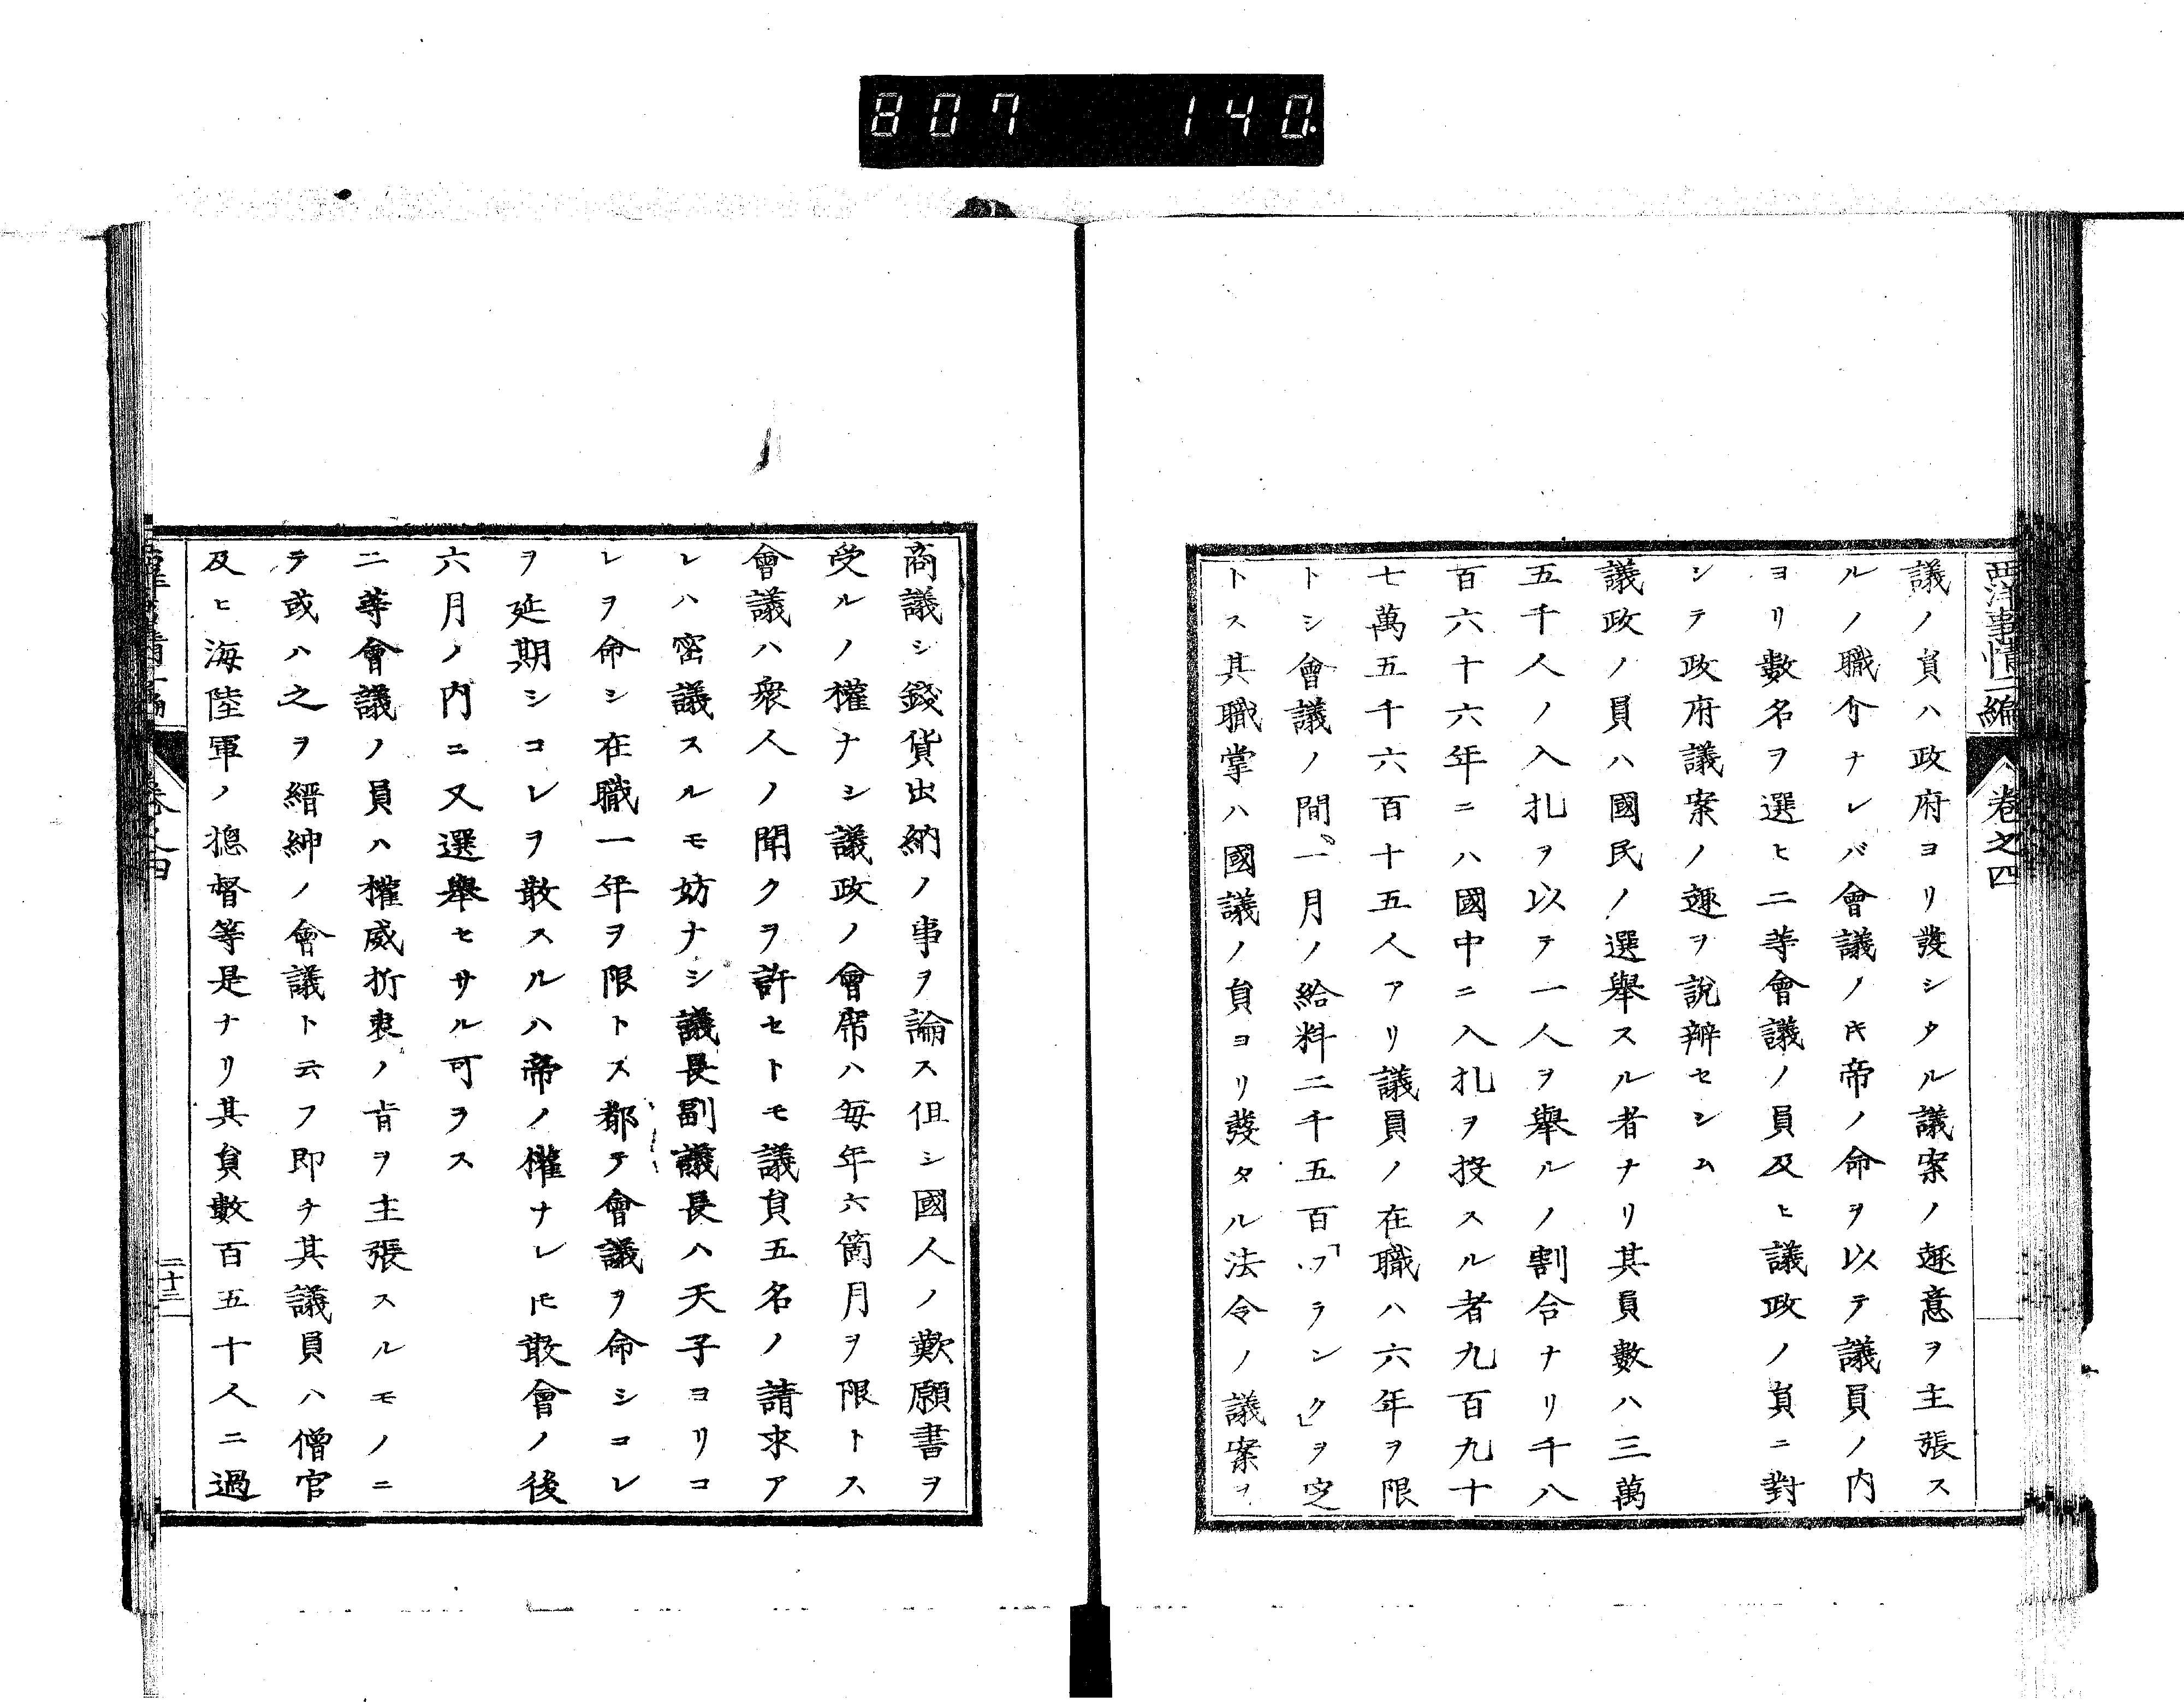 807 140.
西洋事情二編 卷之四
議ノ員ハ政府ヨリ發シタル議案ノ趣意ヲ主張ス
ルノ職分ナレバ會議ノ𪜈帝ノ命ヲ以テ議員ノ内
ヨリ數名ヲ選ヒ二等會議ノ員及ヒ議政ノ員ニ對
シテ政府議案ノ趣ヲ說辨セシム
議政ノ員ハ國民ノ選舉スル者ナリ其員數ハ三萬
五千人ノ入札ヲ以テ一人ヲ舉ルノ割合ナリ千八
百六十六年ニハ國中ニ入札ヲ投スル者九百九十
七萬五千六百十五人アリ議員ノ在職ハ六年ヲ限
トシ會議ノ間、一月ノ給料二千五百「フランク」ヲ定
トス其職掌ハ國議ノ員ヨリ發タル法令ノ議案ヲ
商議シ錢貨出納ノ事ヲ論ス但シ國人ノ歎願書ヲ
受ルノ權ナシ議政ノ會席ハ每年六箇月ヲ限トス
會議ハ衆人ノ聞クヲ許セトモ議員五名ノ請求ア
レハ密議スルモ妨ナシ議長副議長ハ天子ヨリコ
レヲ命シ在職一年ヲ限トス都テ會議ヲ命シコレ
ヲ延期シコレヲ散スルハ帝ノ權ナレ𪜈散會ノ後
六月ノ内ニ又選舉セサル可ヲス
二等會議ノ員ハ權威折衷ノ旨ヲ主張スルモノニ
テ或ハ之ヲ縉紳ノ會議ト云フ即チ其議員ハ僧官
及ヒ海陸軍ノ摠督等是ナリ其員數百五十人ニ過
卷之四
二十二